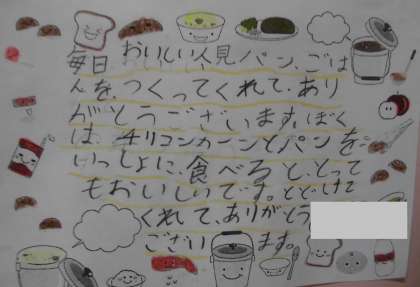 毎日 おいしい人見パン、ごは
んを、つくってくれて、あり
がとうございます。ぼく
は、チリコンカーンとパンを
いっしょに、食べると、とって
もおいしいです。とどけて
くれて、ありがとう
ございます。